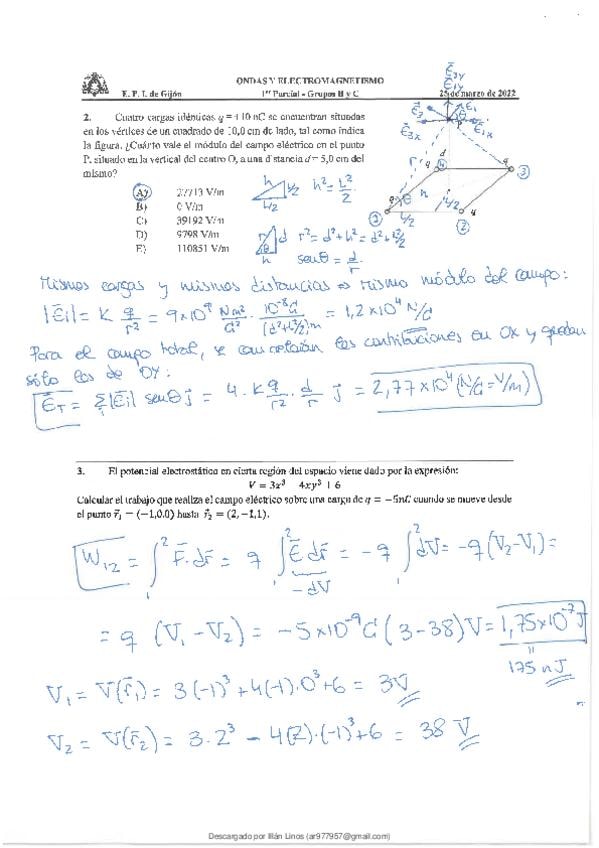 ONDAS Y ELECTROMAGNETISMO
E. P. I. de Gijón 1er Parcial - Grupos B y C 25 de marzo de 2022
2. Cuatro cargas idénticas q = +10 nC se encuentran situadas
en los vértices de un cuadrado de 10,0 cm de lado, tal como indica
la figura. ¿Cuánto vale el módulo del campo eléctrico en el punto
P, situado en la vertical del centro O, a una distancia d = 5,0 cm del
mismo?
A) 27713 V/m
B) 0 V/m
C) 39192 V/m
D) 9798 V/m
E) 110851 V/m
h L/2 h² = L²/2
L/2
r d r² = d² + h² = d² + L²/2
h senθ = d/r
Mismas cargas y mismas distancias ⇒ mismo módulo del campo:
|E⃗i| = K q/r² = 9×10⁹ Nm²/C² · 10⁻⁸C/(d²+L²/2)m = 1,2×10⁴ N/C
Para el campo total, se cancelarán las contribuciones en OX y quedan
sólo las de OY:
E⃗T = Σ|E⃗i| senθ j⃗ = 4·K q/r² · d/r j⃗ = 2,77×10⁴ (N/C = V/m)
3. El potencial electrostático en cierta región del espacio viene dado por la expresión:
V = 3x³ − 4xy³ + 6
Calcular el trabajo que realiza el campo eléctrico sobre una carga de q = −5nC cuando se mueve desde
el punto r⃗₁ = (−1,0,0) hasta r⃗₂ = (2,−1,1).
W₁₂ = ∫₁² F⃗·dr⃗ = q ∫₁² E⃗dr⃗ = −q ∫₁² dV = −q(V₂−V₁) =
−dV
= q (V₁ − V₂) = −5×10⁻⁹C (3−38)V = 1,75×10⁻⁷J
175 nJ
V₁ = V(r⃗₁) = 3(−1)³ + 4(−1)·0³ + 6 = 3V
V₂ = V(r⃗₂) = 3·2³ − 4(2)·(−1)³ + 6 = 38 V
Descargado por Illán Linos (ar977957@gmail.com)